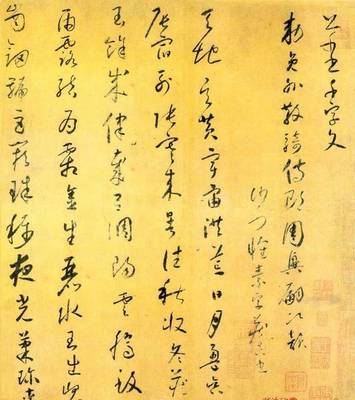 千字文
敕員外散騎侍郎周興嗣次韻
沙門懷素字藏真
天地玄黃宇宙洪荒日月盈昃
辰宿列張寒來暑往秋收冬藏
閏餘成歲律呂調陽雲騰致
雨露結為霜金生麗水玉生崑
崗劍號巨闕珠稱夜光菓珍李